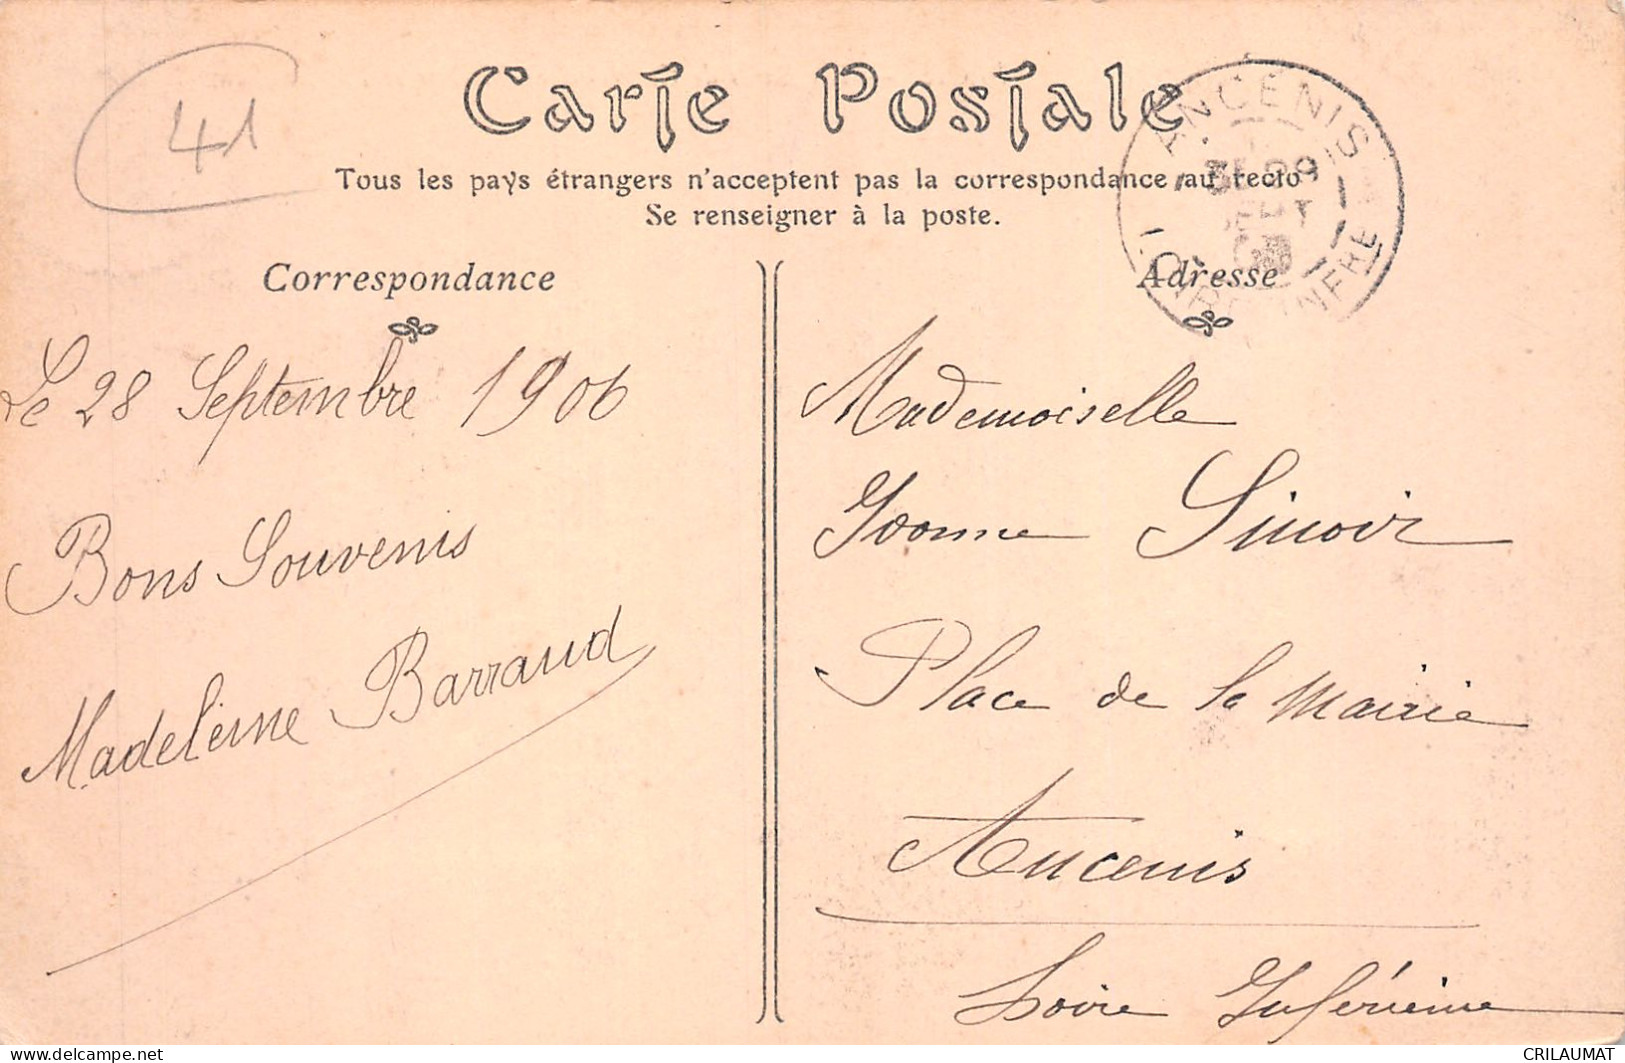 41
Carte Postale
Tous les pays étrangers n'acceptent pas la correspondance au recto
Se renseigner à la poste.
ANCENIS
SEPT
LOIRE INFRE
Correspondance
Le 28 Septembre 1906
Bons Souvenirs
Madeleine Barraud
Adresse
Mademoiselle
Yvonne Sinoir
Place de la Mairie
Ancenis
Loire Inférieure
delcampe.net
CRILAUMAT